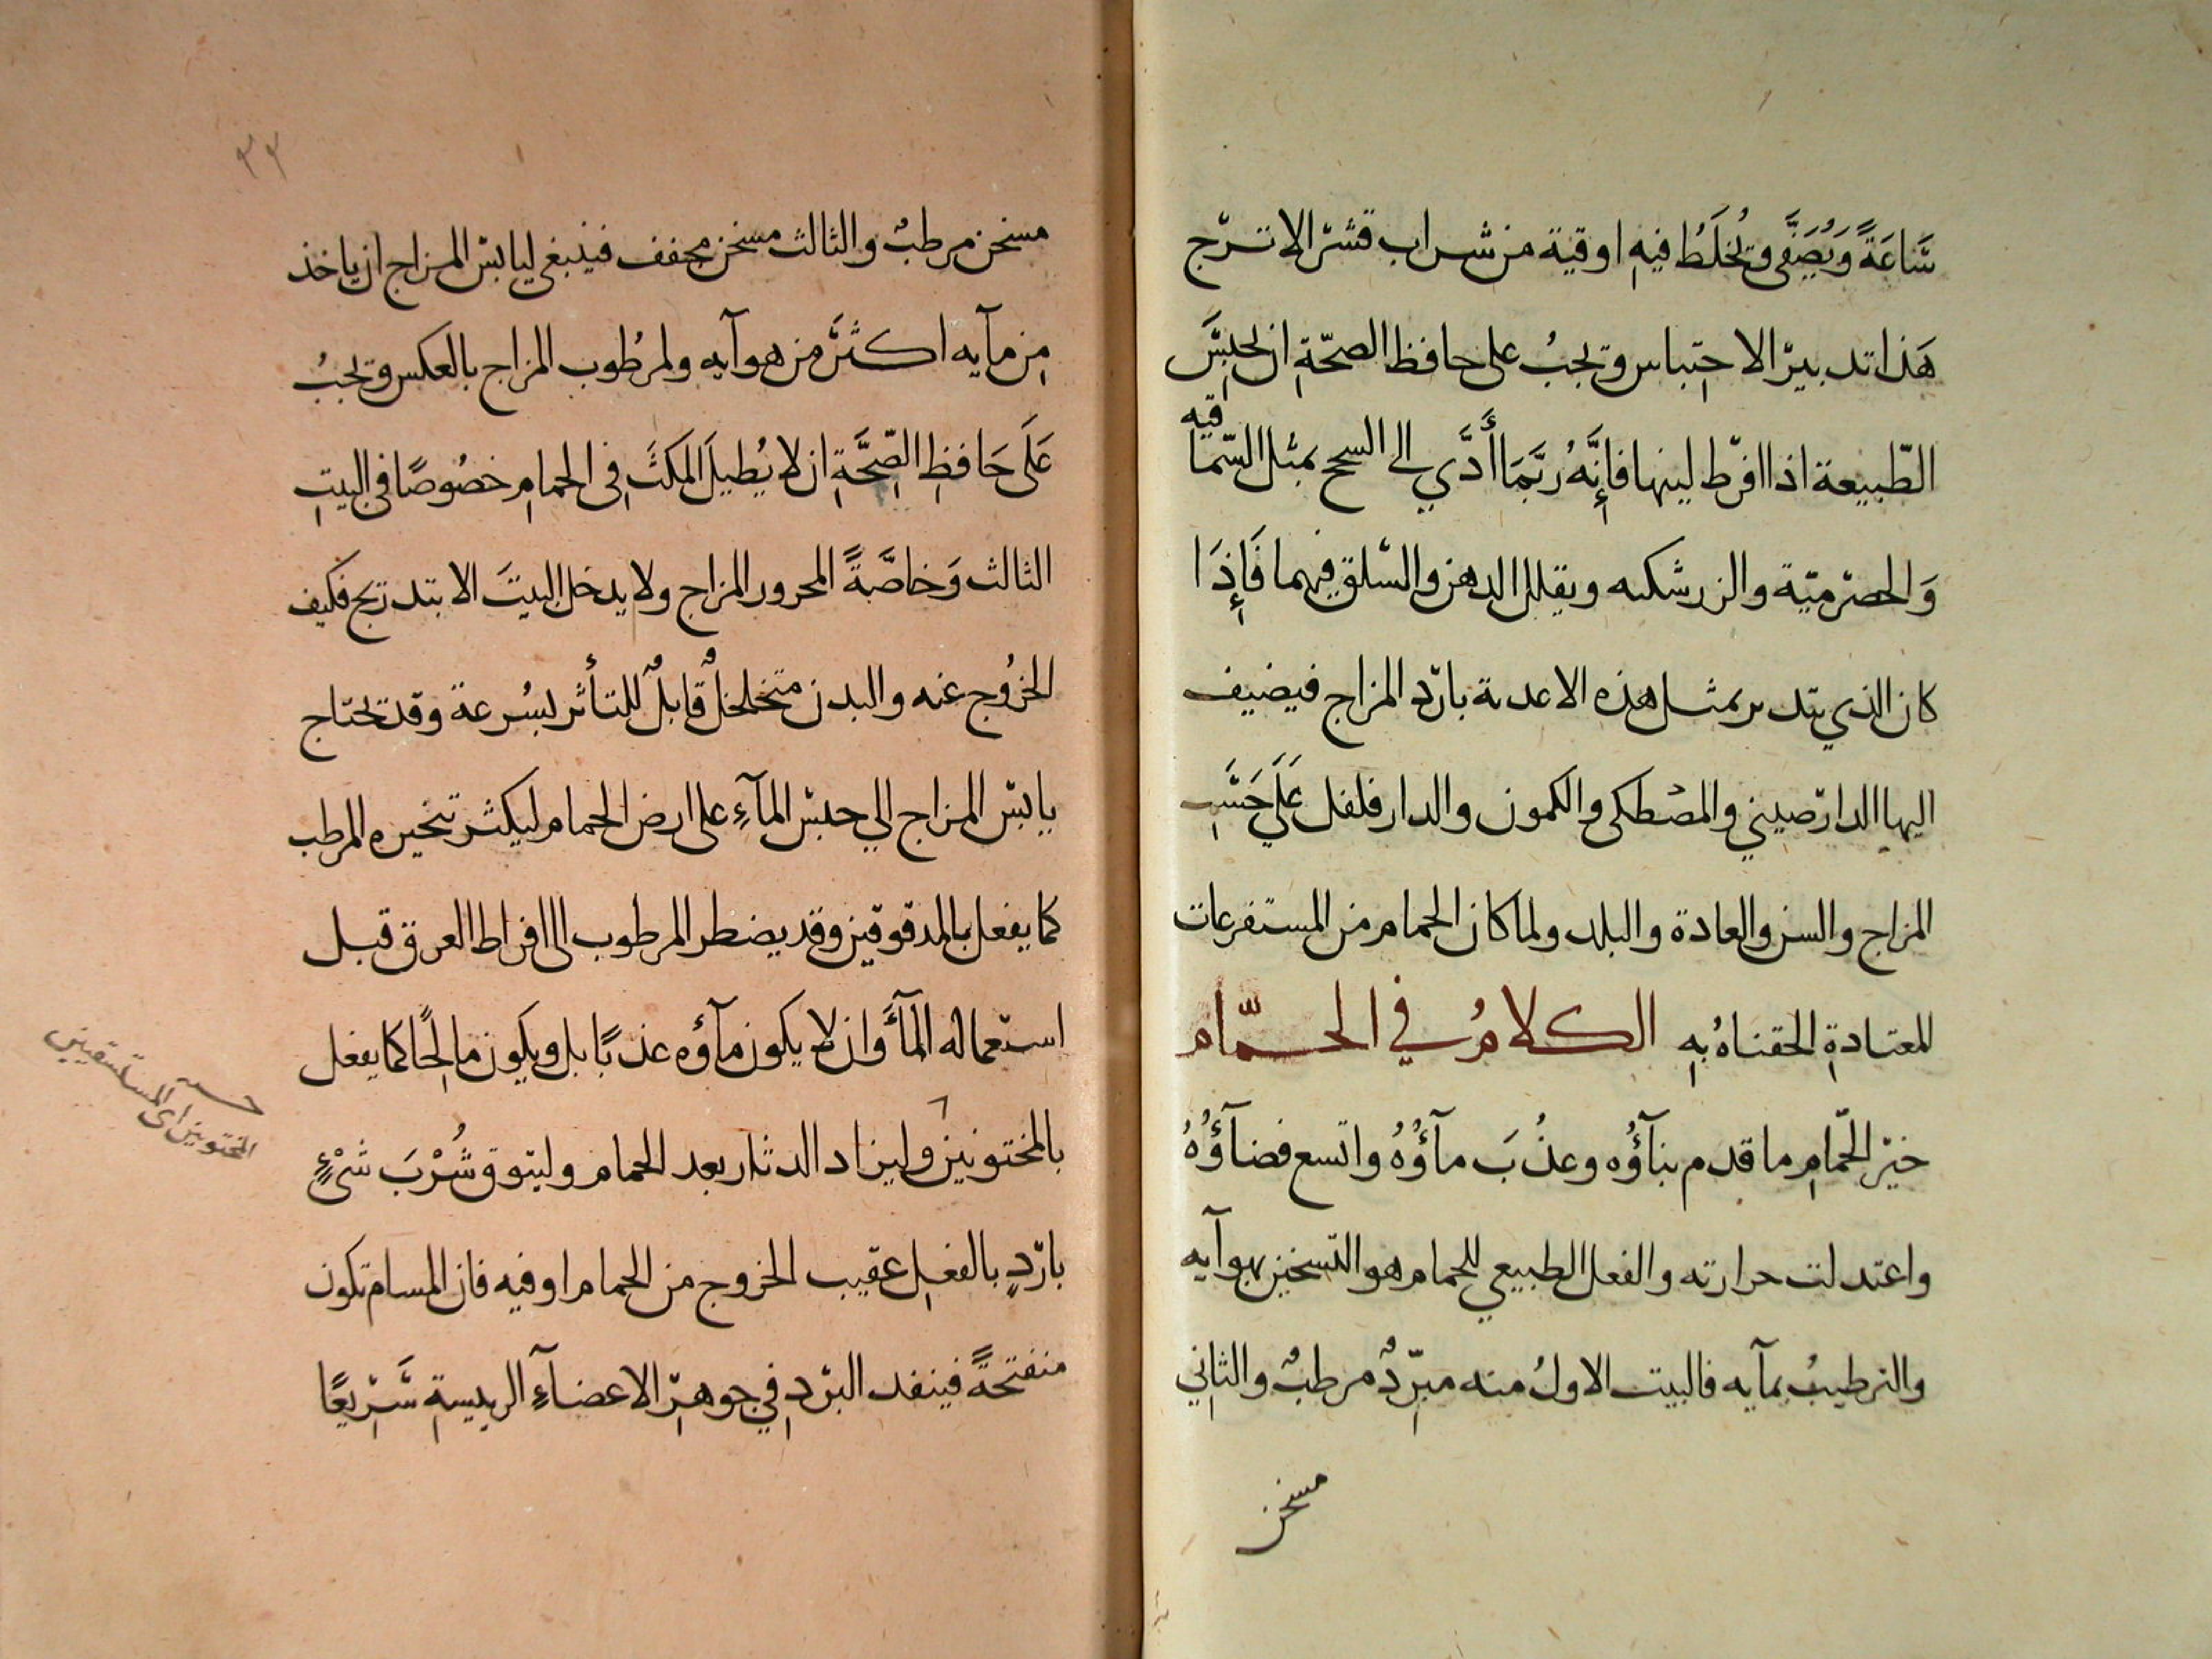 سَاعَةً وَيُصَفَّى ويُخلَطُ فيهِ اوقية من شراب قشر الاترج
هَذا تدبير الاحتِباس ويجبُ على حافظ الصحّةِ ان يحبِسَ
الطّبيعة اذا افرط لينها فإِنَّهُ رُبَّمَا أَدَّي الى السحج بمثل السّماقيه
وَالحصرميّة والزرشكيه ويقلل الدهن والسلق فيهما فَإِذَا
كان الذي يتدبر بمثل هذه الاغذية بارد المزاج فيضيف
اليها الدارصيني والمصطكى والكمون والدارفلفل عَلَي حَسَبِ
المزاج والسن والعادة والبلد ولما كان الحمام من المستفرغات
المعتادةِ الحقناهُ بهِ الكلامُ في الحمّام
خير الحمّامِ ما قدم بنآؤُه وعذُبَ مآؤُهُ واتسع فضآؤُهُ
واعتدلت حرارته والفعل الطبيعي للحمام هو التسخين بهوآيه
والترطيبُ بمآيه فالبيت الاولُ منه مبرِّدٌ مرطبٌ والثاني
مسخن
٣٢
مسخن مرطبٌ والثالث مسخن مجفف فينبغي ليابس المزاج ان ياخذ
مِن مآيه اكثر من هوآيه ولمرطُوب المزاج بالعكس ويجبُ
عَلَى حَافظِ الصِّحَّةِ ان لا يُطيلَ المكثَ فِى الحمامِ خصُوصًا في البيتِ
الثالث وَخاصَّةً المحرور المزاج ولا يدخل البيتَ الا بتدريج فكيف
الخرُوج عنه والبدن متخلخلٌ قابلٌ للتأثر بسُرعة وقد يحتاج
يابس المزاج الي حبس المآءِ على ارض الحمام ليكثر تبخيره المرطب
كما يفعل بالمدقوقين وقد يضطر المرطوب الى افراط العرق قبل
استعماله المآءَ وان لا يكون مآؤه عذبًا بل ويكون مالحًا كما يفعل
بالمختونين وليزاد الدثار بعد الحمام وليتوق شُرْبَ شئٍ
باردٍ بالفعلِ عقيب الخروج من الحمام او فيه فان المسام تكون
منفتحةً فينفد البرد في جوهر الاعضآءِ الرييسةِ سَرِيعًا
المختونين اى المستسقيين